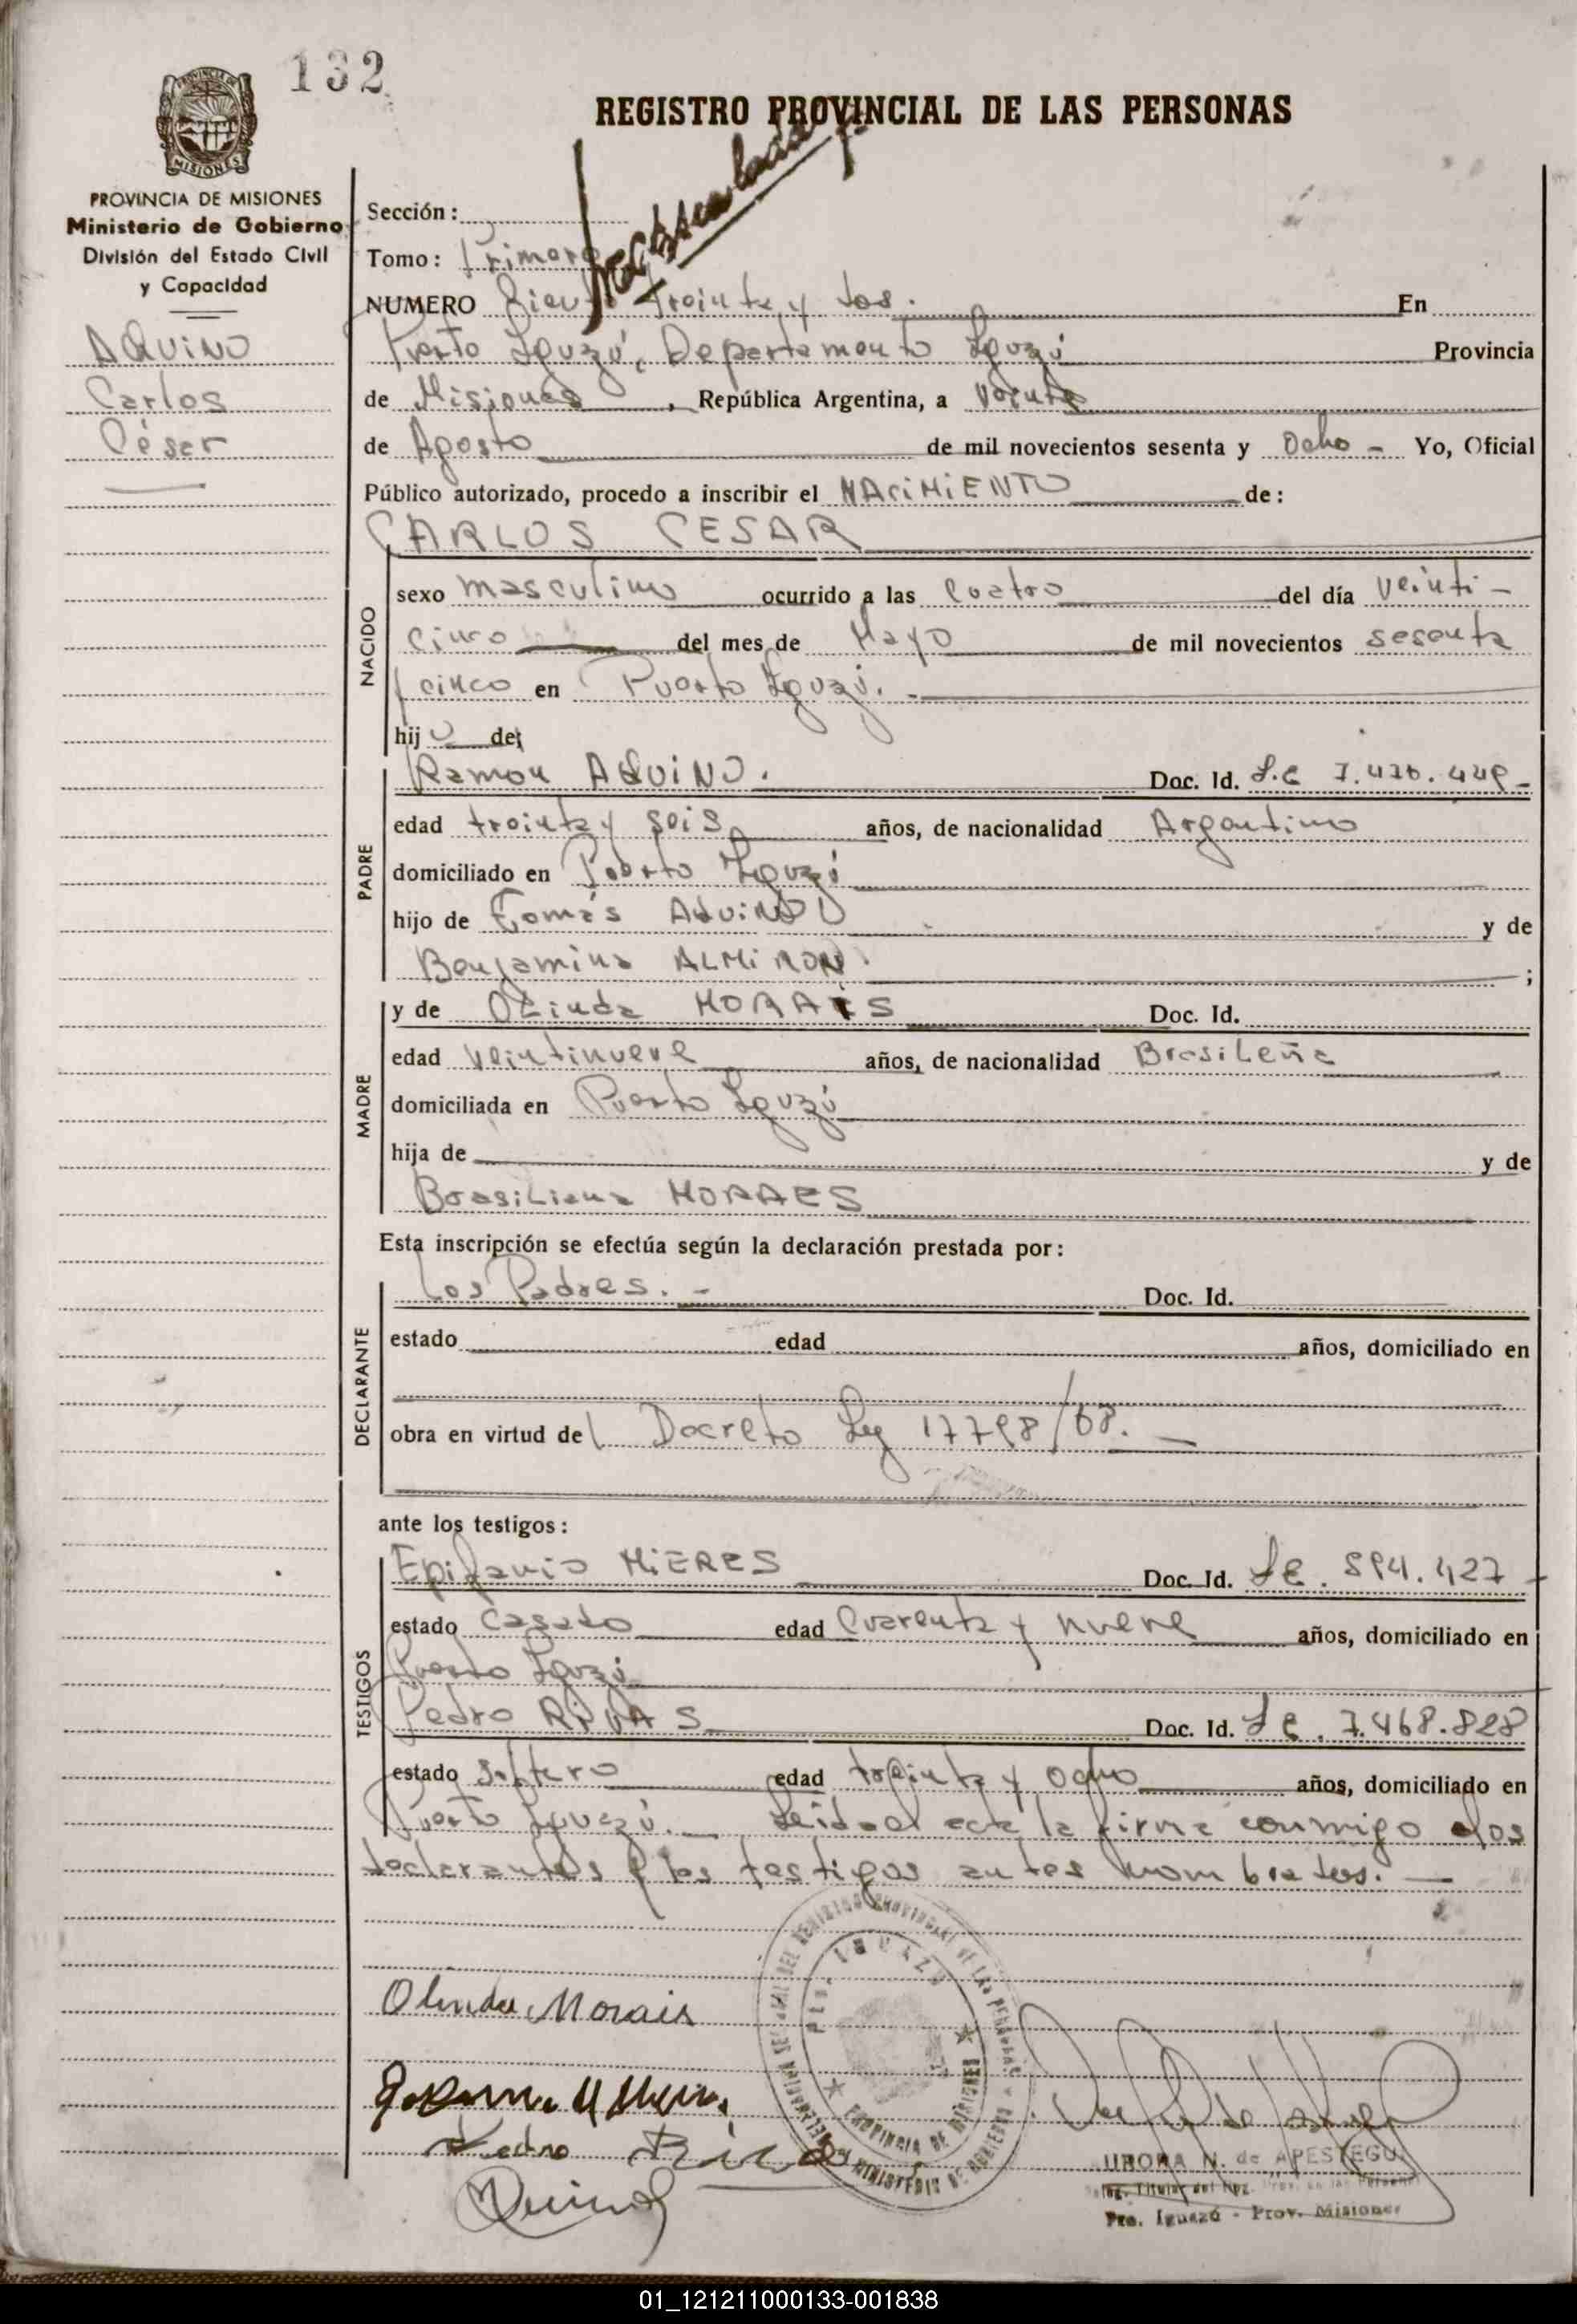 132
REGISTRO PROVINCIAL DE LAS PERSONAS
PROVINCIA DE MISIONES
PROVINCIA DE MISIONES
Ministerio de Gobierno
División del Estado Civil
y Capacidad
AQUINO
Carlos
César
Sección:
Tomo: Primero
NUMERO Ciento treinta y dos. En
Puerto Iguazú, Departamento Iguazú Provincia
de Misiones, República Argentina, a Veinte
de Agosto de mil novecientos sesenta y Ocho - Yo, Oficial
Público autorizado, procedo a inscribir el NACIMIENTO de:
CARLOS CESAR
NACIDO
sexo masculino ocurrido a las Cuatro del día Veinti-
cinco del mes de Mayo de mil novecientos sesenta
y cinco en Puerto Iguazú. -
hijo de:
PADRE
Ramon AQUINO. Doc. Id. 
edad treinta y seis años, de nacionalidad Argentino
domiciliado en Puerto Iguazú
hijo de Tomás AQUINO y de
Benjamina ALMIRON. ;
MADRE
y de Olinda MORAIS Doc. Id.
edad veintinueve años, de nacionalidad Brasileña
domiciliada en Puerto Iguazú
hija de y de
Brasiliana MORAES
Esta inscripción se efectúa según la declaración prestada por:
DECLARANTE
Los Padres. - Doc. Id.
estado edad años, domiciliado en
obra en virtud de Decreto Ley 17798/68. -
ante los testigos:
TESTIGOS
Epifanio MIERES Doc. Id. 894.427
estado Casado edad Cuarenta y nueve años, domiciliado en
Puerto Iguazú
Pedro RIVAS Doc. Id. 7.468.828
estado Soltero edad treinta y ocho años, domiciliado en
Puerto Iguazú. - Leída el acta la firma conmigo los
declarantes y los testigos antes nombrados. -
Olinda Morais
Pedro Rivas
AURORA N. de APESTEGUI
Pto. Iguazú - Prov. Misiones
01_121211000133-001838